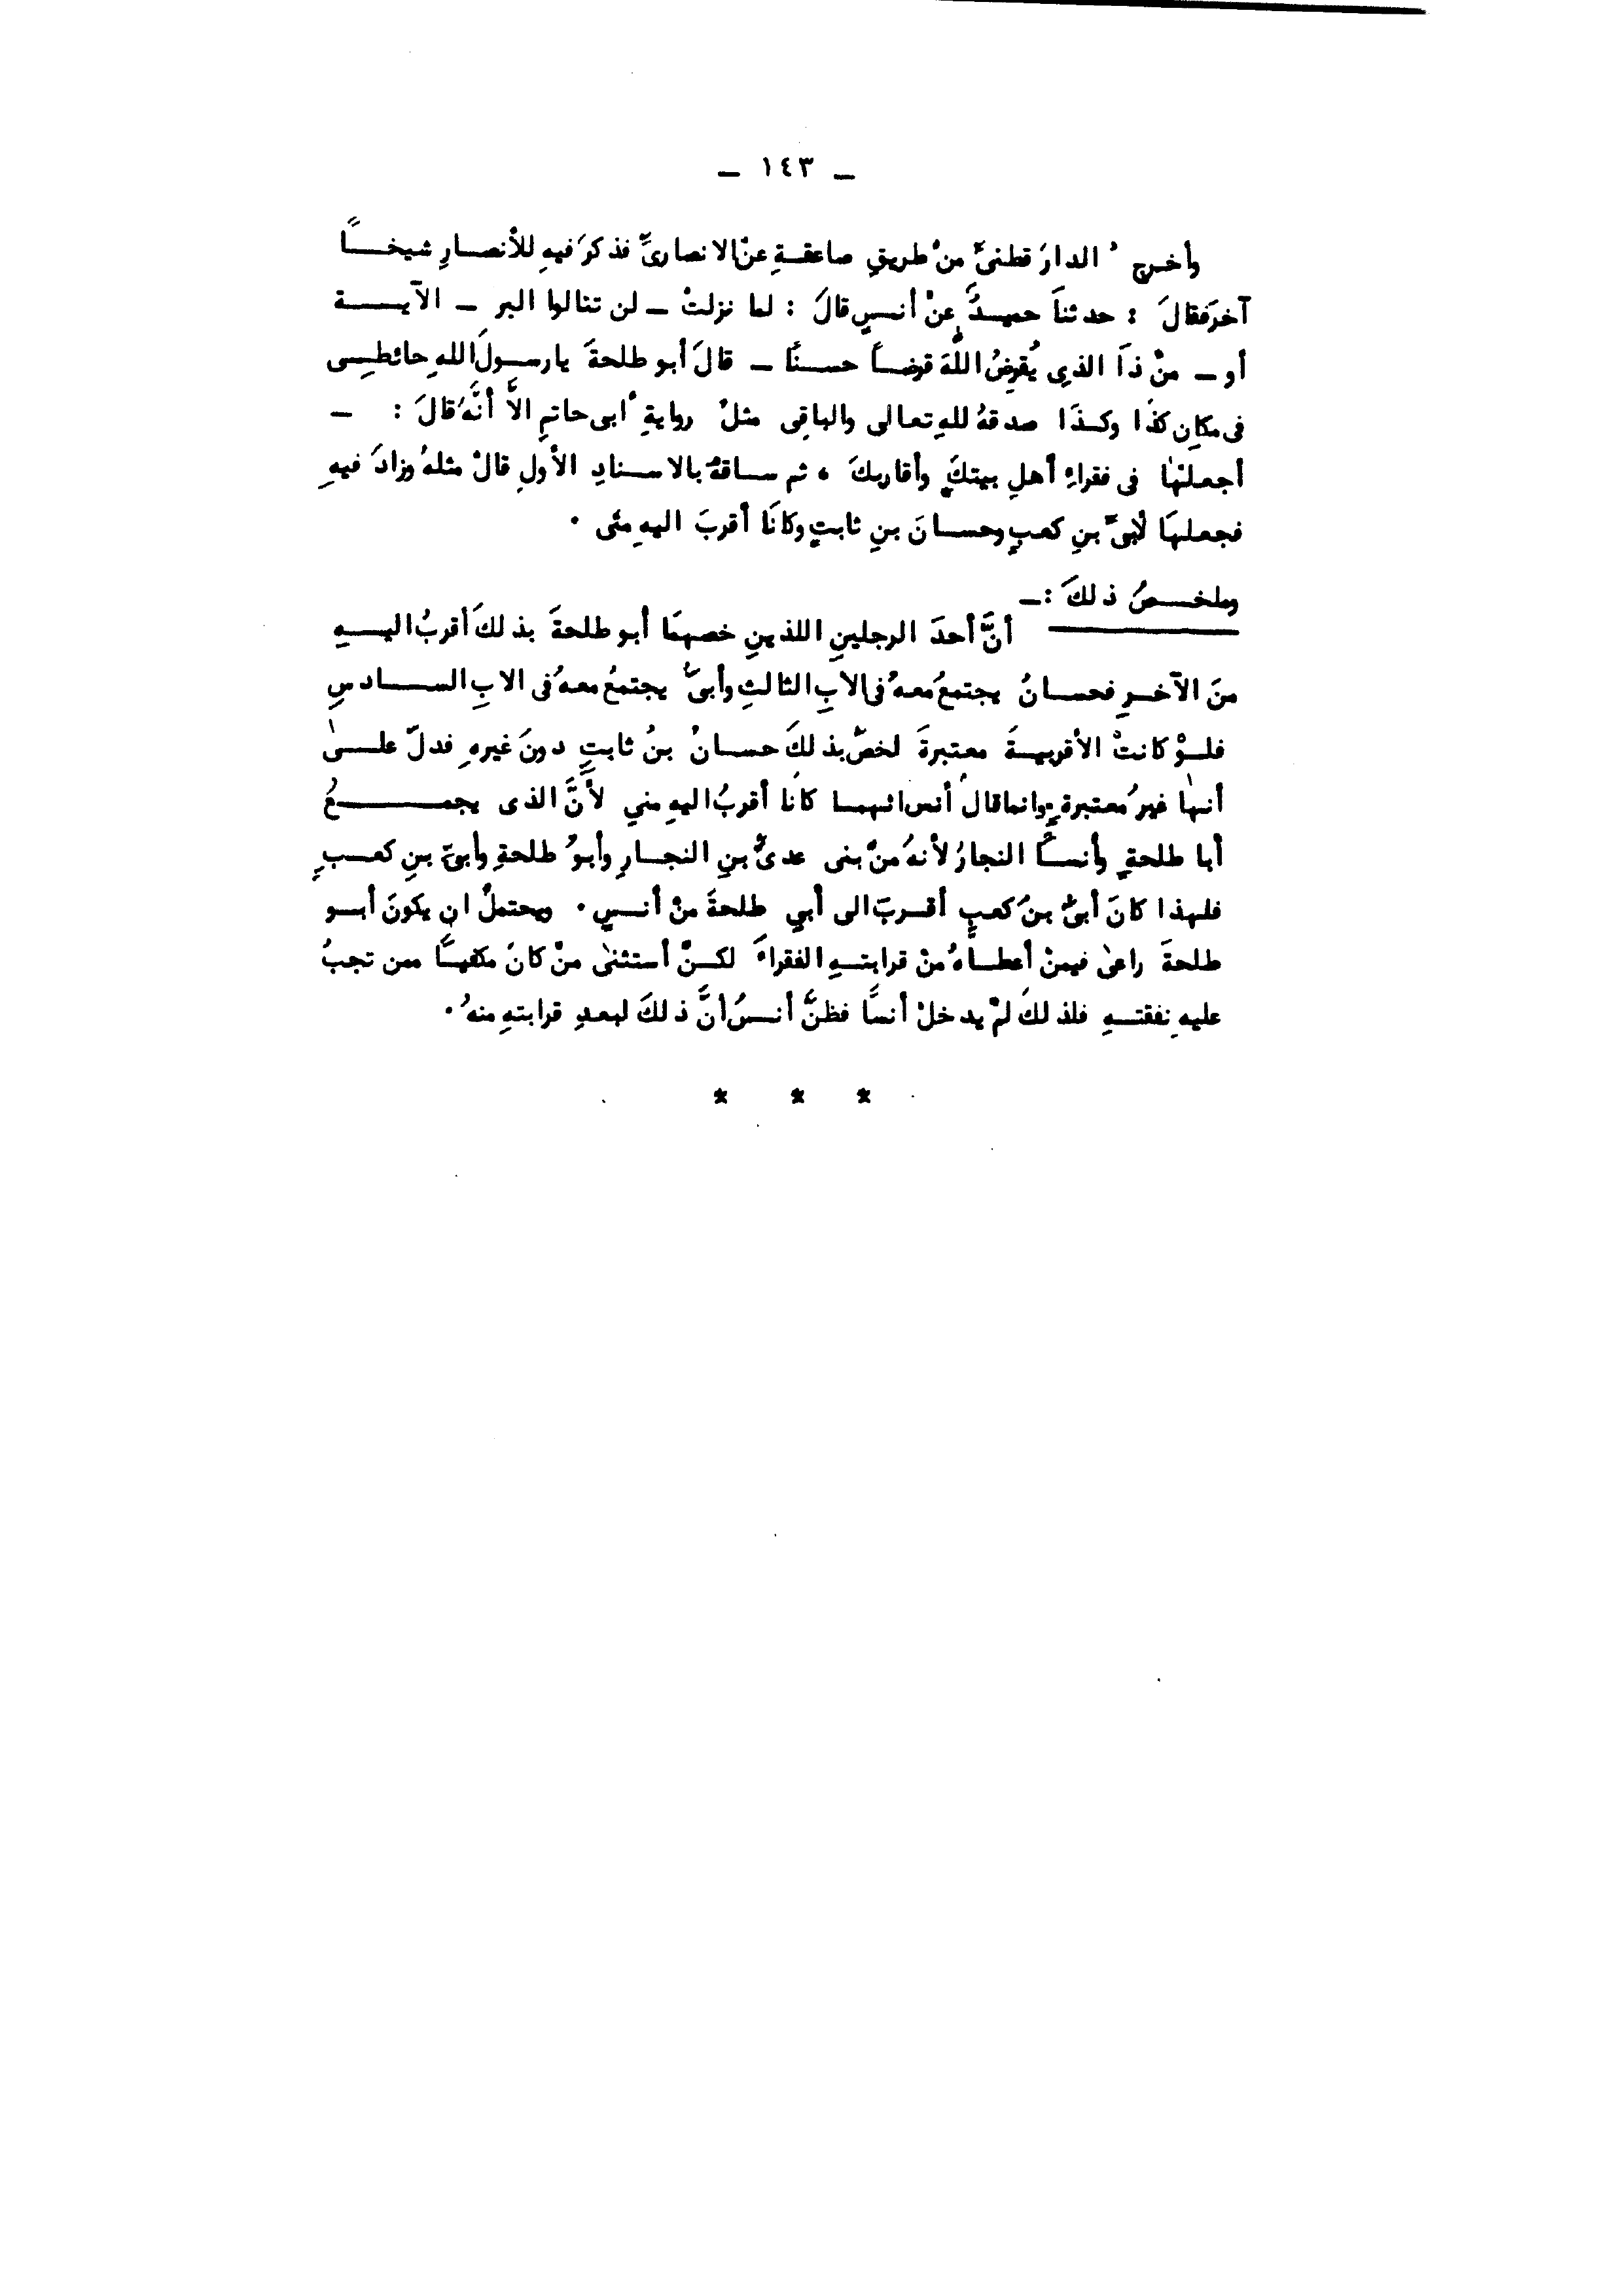 ـ ١٤٣ ـ
وأخرج ُ الدارَ قطنىّ منْ طريقِ صاعقةِ عنْ الانصارىِّ فذكرَ فيهِ للأنصارِ شيخًا
آخرَ فقالَ : حدثنَا حميدٌ عنْ أنسٍ قالَ : لما نزلتْ ـ لن تنالوا البر ـ الآية
أو ـ منْ ذَا الذىِ يُقرِضُ اللّٰهَ قرضاً حسنًا ـ قالَ أبو طلحةَ يارسولَ اللهِ حائطِى
فى مكانِ كذَا وكذَا صدقهُ للهِ تعالى والباقِى مثلُ روايةِ أبى حاتمِ الاَّ أنَّهُ قالَ : ـ
أجعلهْا فى فقراءِ أهلِ بيتكَ وأقاربكَ ، ثم ساقهُ بالاسنادِ الأولِ قالَ مثلهُ وزادَ فيهِ
فجعلهَا لأبىّ بنِ كعبٍ وحسانَ بنِ ثابتٍ وكانَا أقربَ اليهِ منّى ٠
وملخصُ ذلكَ :ـ
أنَّ أحدَ الرجلينِ اللذينِ خصهمَا أبو طلحةَ بذلكَ أقربُ اليهِ
منَ الآخرِ فحسانُ يجتمعُ معهُ فى الابِ الثالثِ وأبىُّ يجتمعُ معهُ فى الابِ السادسِ
فلوْ كانتْ الأقربيةَ معتبرةَ لخصّ بذلكَ حسانُ بنُ ثابتٍ دونَ غيرهِ فدلّ علىٰ
أنهٰا غيرُ معتبرةٍ وانما قالَ أنس انهما كانَا أقربُ اليهِ منيِ لأَنَّ الذى يجمعُ
أبا طلحةِ وأنسًا النجارُ لأنهُ منْ بنى عدىُّ بنِ النجارِ وأبوُ طلحةِ وأبىّ بنِ كعبٍ
فلهذا كانَ أبىُّ بنُ كعبٍ أقربَ الى أبيِ طلحةَ منْ أنسٍ ٠ ويحتملُ انِ يكونَ أبو
طلحةَ راعىٰ فيمنْ أعطاَهُ منْ قرابتهِ الفقراءَ لكنّ أستثنىٰ منْ كانَ مكفيًا ممن تجبُ
عليهِ نفقتهِ فلذلكَ لمْ يدخلْ أنسًا فظنَّ أنسُ أنَّ ذلكَ لبعدِ قرابتهِ منهُ ٠
* * *